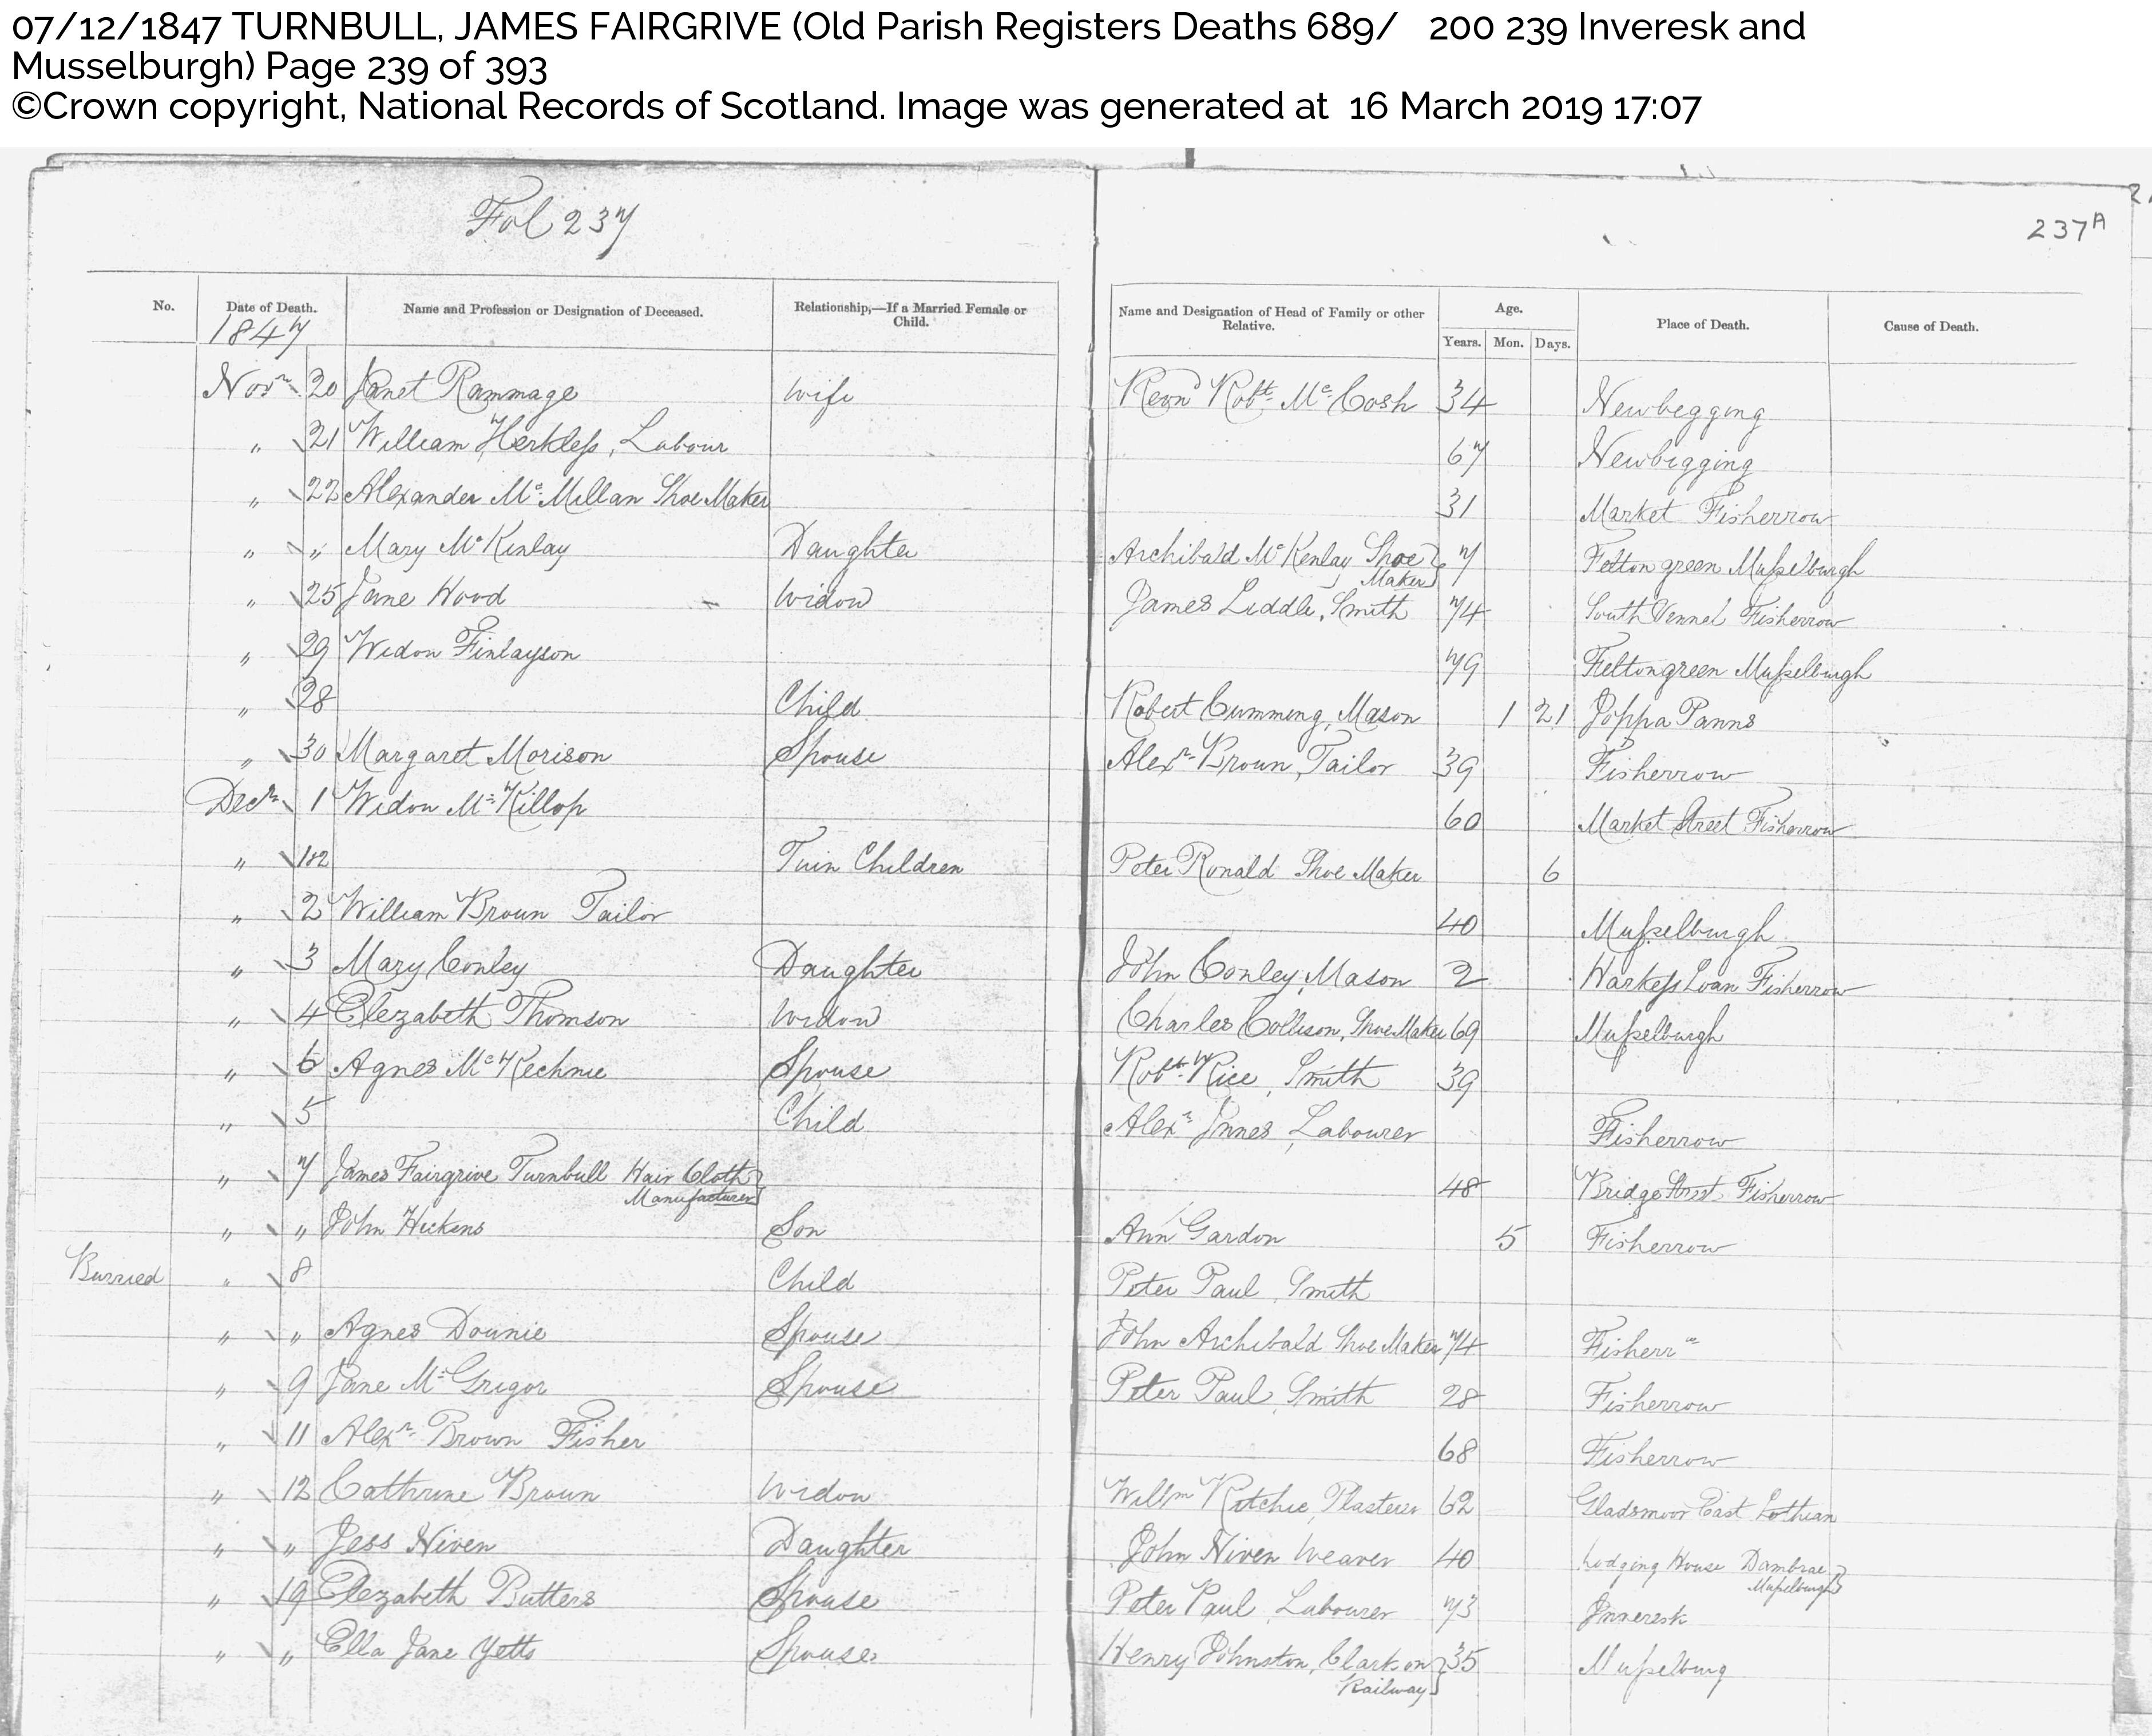 07/12/1847 TURNBULL, JAMES FAIRGRIVE (Old Parish Registers Deaths 689/ 200 239 Inveresk and
Musselburgh) Page 239 of 393
©Crown copyright, National Records of Scotland. Image was generated at 16 March 2019 17:07
Fol 237
237A
No. Date of Death. Name and Profession or Designation of Deceased. Relationship,—If a Married Female or Child. Name and Designation of Head of Family or other Relative. Age. Years. Mon. Days. Place of Death. Cause of Death.
1847
Novr 20 Janet Rammage Wife Revd Robt McCosh 34 Newbegging
" 21 William Herkless, Labour 67 Newbigging
" 22 Alexander McMillan Shoe Maker 31 Market Fisherrow
" " Mary McKinlay Daughter Archibald McKenlay Shoe Maker 7 Felton green Musselburgh
" 25 Jane Hood Widow James Liddle, Smith 74 South Vennel Fisherrow
" 29 Widow Finlayson 79 Feltongreen Musselburgh
" 28 Child Robert Cumming, Mason 1 21 Joppa Panns
" 30 Margaret Morison Spouse Alexr Broun, Tailor 39 Fisherrow
Decr 1 Widow McKillop 60 Market Street Fisherrow
" 1&2 Twin Children Peter Ronald Shoe Maker 6
" 2 William Broun Tailor 40 Musselburgh
" 3 Mary Conley Daughter John Conley, Mason 2 Harkess Loan Fisherrow
" 4 Elezabeth Thomson Widow Charles Collison, Shoe Maker 69 Musselburgh
" 6 Agnes McKechnie Spouse Robt Rice, Smith 39
" 5 Child Alexr Innes, Labourer Fisherrow
" 7 James Fairgrive Turnbull Hair Cloth Manufacturer 48 Bridge Street Fisherrow
" " John Hickens Son Ann Gardon 5 Fisherrow
Burried " 8 Child Peter Paul, Smith
" " Agnes Dounie Spouse John Archibald Shoe Maker 74 Fisherrw
" 9 Jane McGrigor Spouse Peter Paul, Smith 28 Fisherrow
" 11 Alexr Brown Fisher 68 Fisherrow
" 12 Cathrine Broun Widow Willm Ritchie, Plasterer 62 Gladsmoor East Lothian
" " Jess Niven Daughter John Niven Weaver 40 Lodging House Dambrae Musselburgh
" 19 Elezabeth Butters Spouse Peter Paul, Labourer 73 Inneresk
" " Ella Jane Yetts Spouse Henry Johnston, Clark on Railway 35 Musselburg